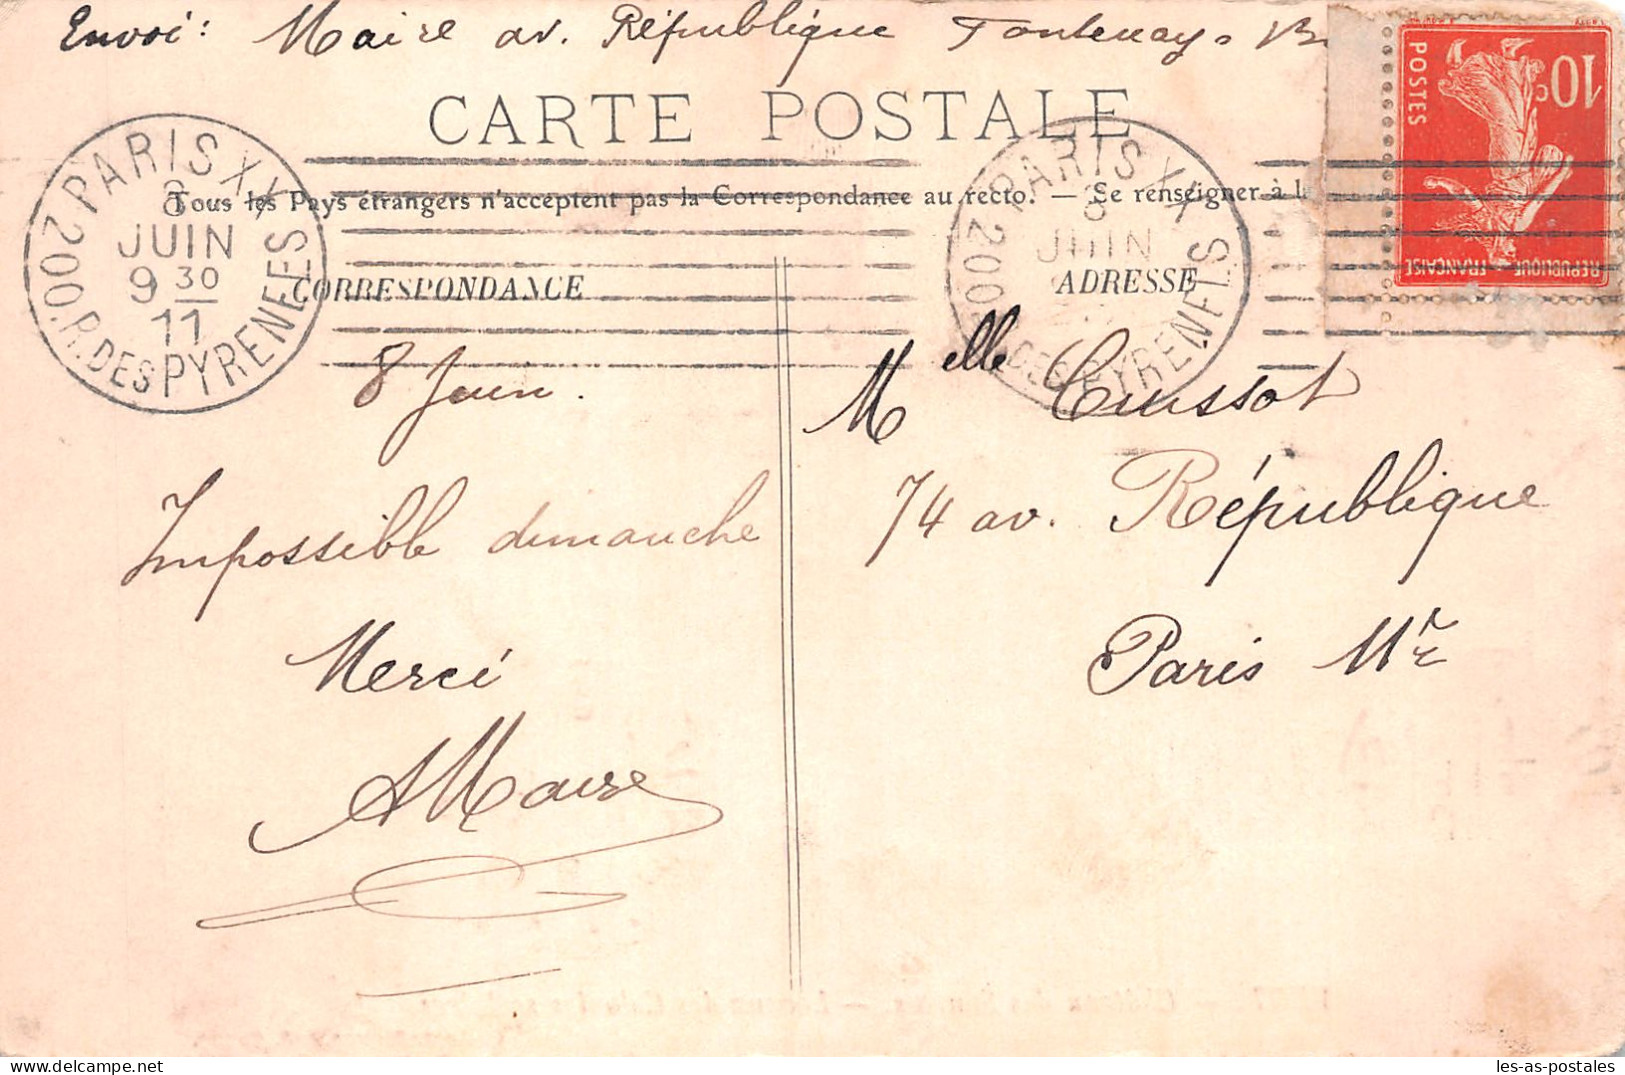 Envoi: Maire av. République Fontenay s B
CARTE POSTALE
Tous les Pays étrangers n'acceptent pas la Correspondance au recto. — Se renseigner à l
PARIS XX
8
JUIN
9 30
11
200. R. DES PYRENEES
PARIS XX
8
JUIN
200 DES PYRENEES
10c
POSTES
REPUBLIQUE FRANÇAISE
CORRESPONDANCE
ADRESSE
8 Juin.
Impossible dimanche
Merci
AMaire
Melle Cuissot
74 av. République
Paris
les-as-postales